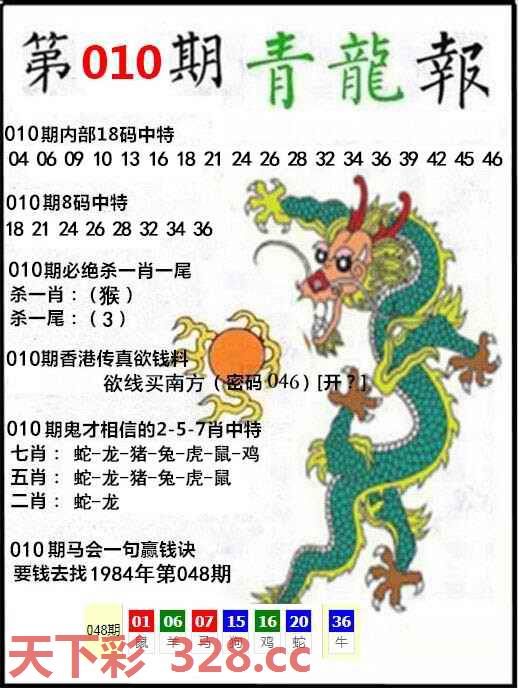 第010期青龍報
010期内部18码中特
04 06 09 10 13 16 18 21 24 26 28 32 34 36 39 42 45 46
010期8码中特
18 21 24 26 28 32 34 36
010期必绝杀一肖一尾
杀一肖：（猴）
杀一尾：（3）
010期香港传真欲钱料
欲线买南方（密码046）[开？]
010期鬼才相信的2-5-7肖中特
七肖：蛇-龙-猪-兔-虎-鼠-鸡
五肖：蛇-龙-猪-兔-虎-鼠
二肖：蛇-龙
010期马会一句赢钱诀
要钱去找1984年第048期
048期 01 06 07 15 16 20 36
鼠 羊 马 狗 鸡 蛇 牛
天下彩 328.cc